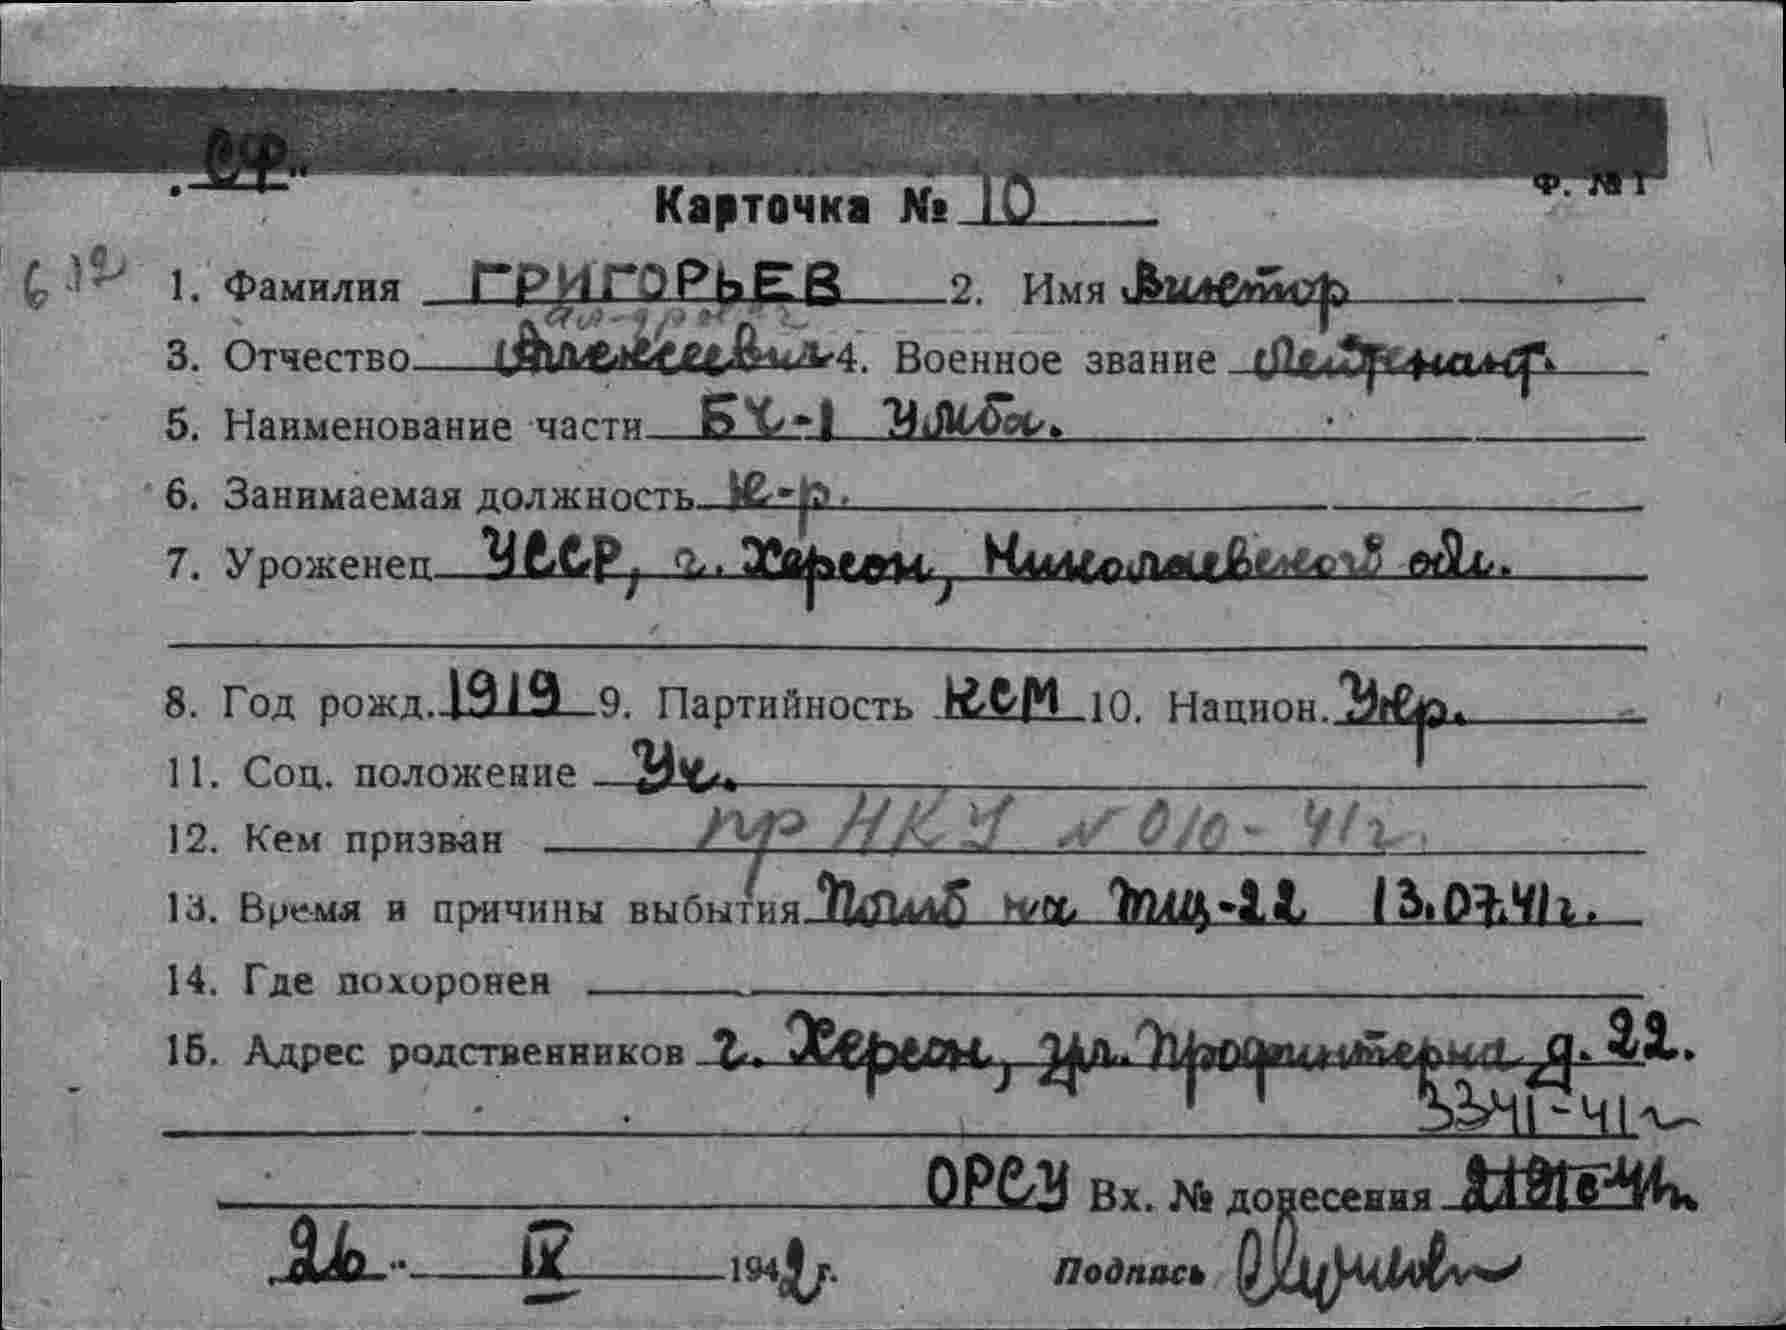 СФ.
Ф. № 1
Карточка № 10
1. Фамилия ГРИГОРЬЕВ 2. Имя Виктор
3. Отчество Алексеевич 4. Военное звание Лейтенант.
5. Наименование части БЧ-1 Умба.
6. Занимаемая должность к-р.
7. Уроженец УССР, г. Херсон, Николаевской обл.
8. Год рожд. 1919 9. Партийность КСМ 10. Национ. Укр.
11. Соц. положение Уч.
12. Кем призван пр НКУ N 010-41г.
13. Время и причины выбытия Погиб на тщ-22 13.07.41г.
14. Где похоронен
15. Адрес родственников г. Херсон, ул. Профинтерна д. 22.
3341-41г
ОРСУ Вх. № донесения
26 IX 1942 г. Подпись